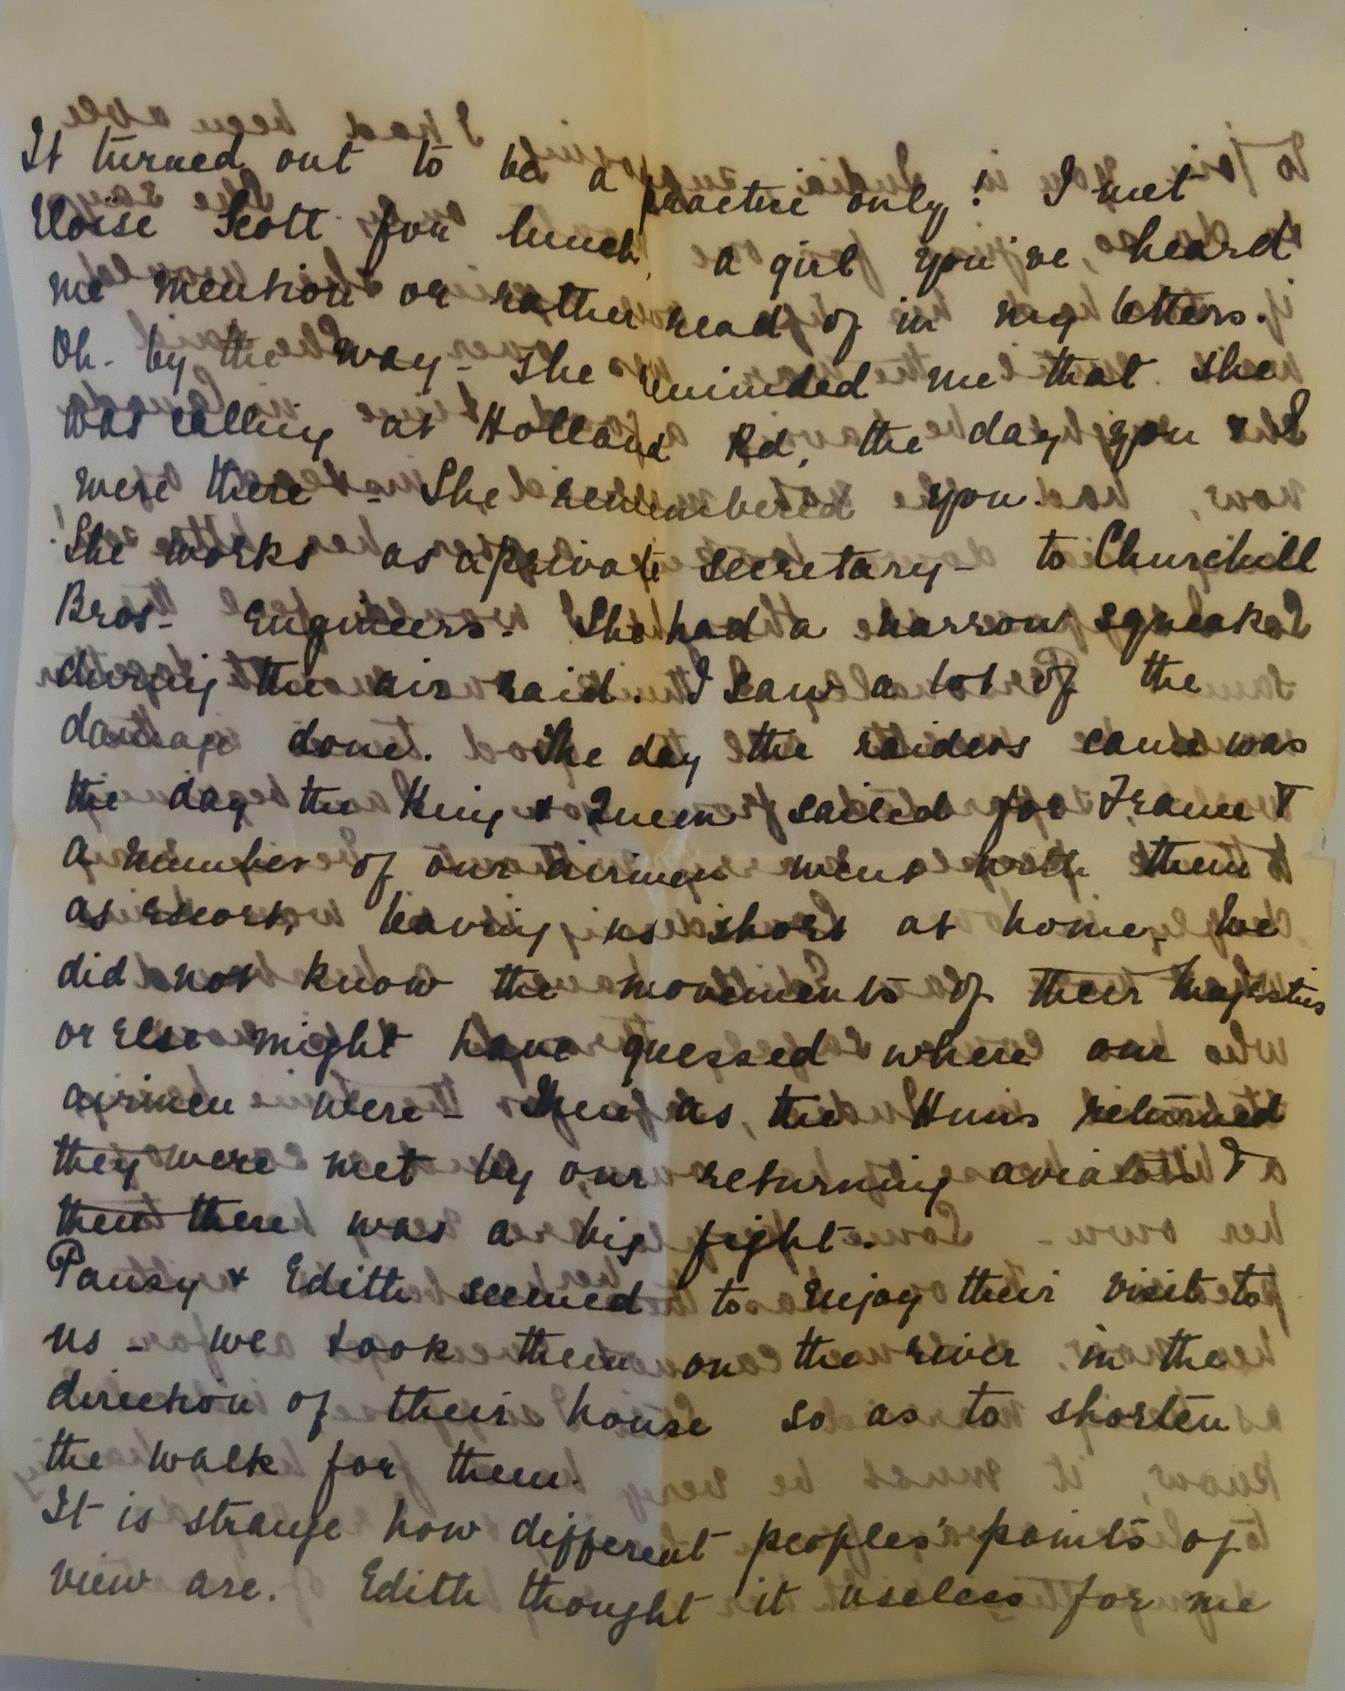 It turned out to be a practice only! I met
Eloise Scott for lunch, a girl you've heard
me mention or rather read of in my letters.
Oh. by the way - she reminded me that she
was calling at Holland Rd, the day you & I
were there - She remembered you.
She works as a private secretary - to Churchill
Bros - Engineers. She had a narrow squeak
during the air raid. I saw a lot of the
damage done. The day the raiders came was
the day the King & Queen sailed for France &
a number of our airmen went with them
as escort, leaving us short at home, we
did not know the movements of their Majesties
or else might have guessed where our
airmen were - Just as, the Huns returned
they were met by our returning aviators &
then there was a big fight.
Pansy & Edith seemed to enjoy their visit to
us - we took them on the river in the
direction of their house so as to shorten
the walk for them.
It is strange how different peoples' points of
view are. Edith thought it useless for me